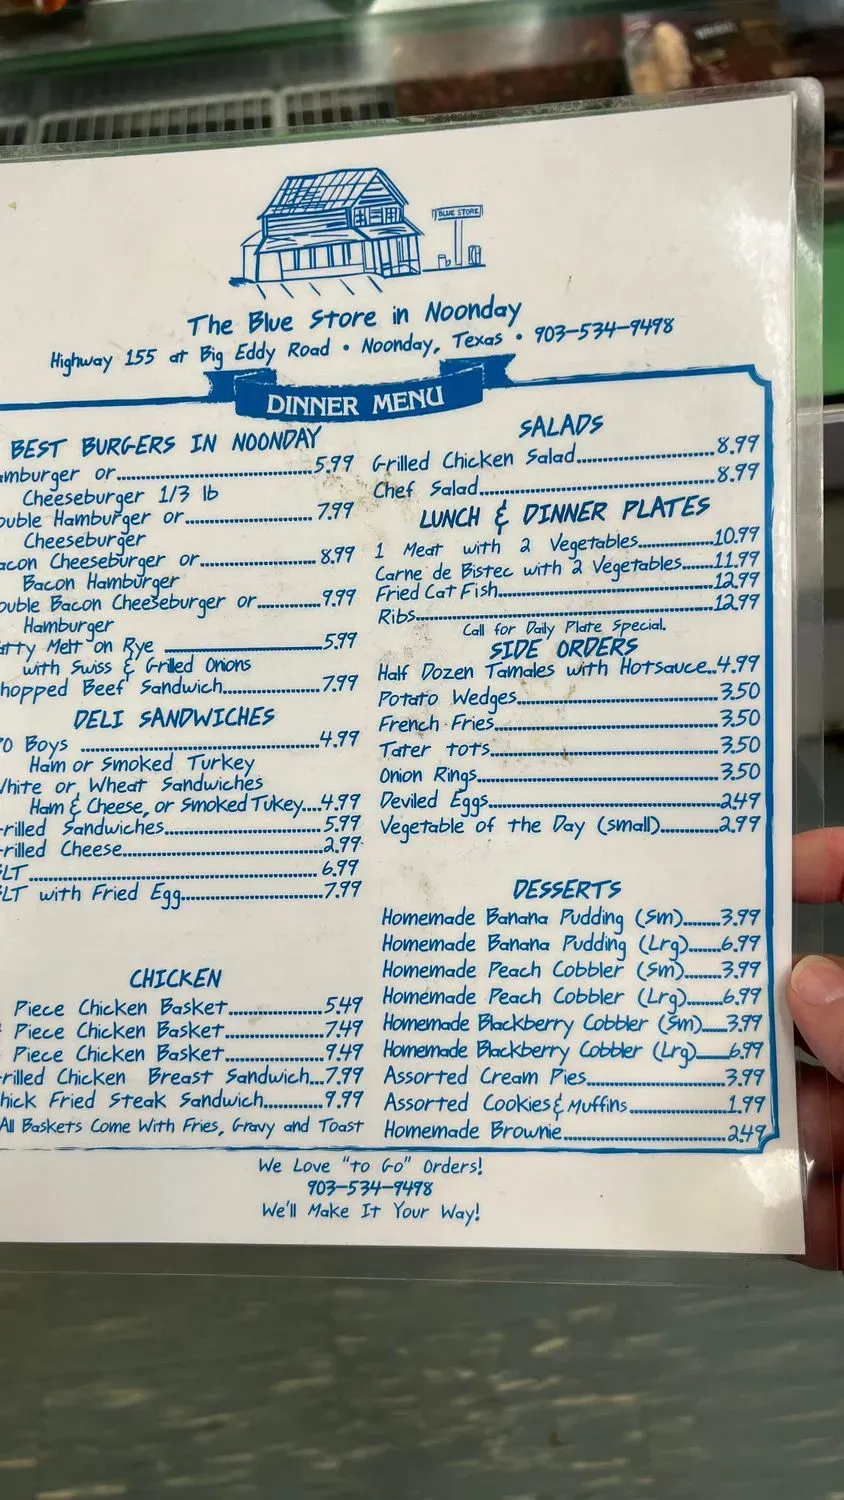 BLUE STORE
The Blue Store in Noonday
Highway 155 at Big Eddy Road • Noonday, Texas • 903-534-9498
DINNER MENU
BEST BURGERS IN NOONDAY
amburger or 5.99
Cheeseburger 1/3 lb
ouble Hamburger or 7.99
Cheeseburger
acon Cheeseburger or 8.99
Bacon Hamburger
ouble Bacon Cheeseburger or 9.99
Hamburger
atty Melt on Rye 5.99
with Swiss & Grilled Onions
hopped Beef Sandwich 7.99
DELI SANDWICHES
PO Boys 4.99
Ham or Smoked Turkey
White or Wheat Sandwiches
Ham & Cheese, or Smoked Tukey 4.99
rilled Sandwiches 5.99
rilled Cheese 2.99
LT 6.99
LT with Fried Egg 7.99
CHICKEN
Piece Chicken Basket 5.49
Piece Chicken Basket 7.49
Piece Chicken Basket 9.49
rilled Chicken Breast Sandwich 7.99
hick Fried Steak Sandwich 9.99
All Baskets Come With Fries, Gravy and Toast
SALADS
Grilled Chicken Salad 8.99
Chef Salad 8.99
LUNCH & DINNER PLATES
1 Meat with 2 Vegetables 10.99
Carne de Bistec with 2 Vegetables 11.99
Fried Cat Fish 12.99
Ribs 12.99
Call for Daily Plate Special.
SIDE ORDERS
Half Dozen Tamales with Hotsauce 4.99
Potato Wedges 3.50
French Fries 3.50
Tater tots 3.50
Onion Rings 3.50
Deviled Eggs 2.49
Vegetable of the Day (small) 2.99
DESSERTS
Homemade Banana Pudding (Sm) 3.99
Homemade Banana Pudding (Lrg) 6.99
Homemade Peach Cobbler (Sm) 3.99
Homemade Peach Cobbler (Lrg) 6.99
Homemade Blackberry Cobbler (Sm) 3.99
Homemade Blackberry Cobbler (Lrg) 6.99
Assorted Cream Pies 3.99
Assorted Cookies & Muffins 1.99
Homemade Brownie 2.49
We Love "to Go" Orders!
903-534-9498
We'll Make It Your Way!